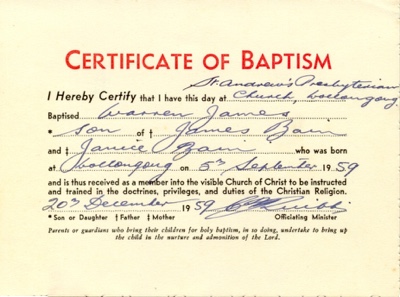 CERTIFICATE OF BAPTISM
St Andrew's Presbyterian
I Hereby Certify that I have this day at Church, Wollongong
Baptised Warren James
* son of † James Bain
and ‡ Janice Bain who was born
at Wollongong on 5th September 1959
and is thus received as a member into the visible Church of Christ to be instructed
and trained in the doctrines, privileges, and duties of the Christian Religion.
20th December 1959
* Son or Daughter † Father ‡ Mother Officiating Minister
Parents or guardians who bring their children for holy baptism, in so doing, undertake to bring up
the child in the nurture and admonition of the Lord.